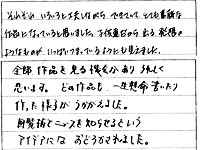 それぞれ いろいろと工夫しながら できていて、とても素敵な
作品になっていると思いました。子供達ならではの発想の
ようなものが、いっぱいつまっているようにも見えました。
全部作品を見る機会があり うれしく
思います。どの作品も、一生懸命書いたり
作った様子が うかがえました。
月賢治でニュースを知らせるという
アイデアには おどろかされました。